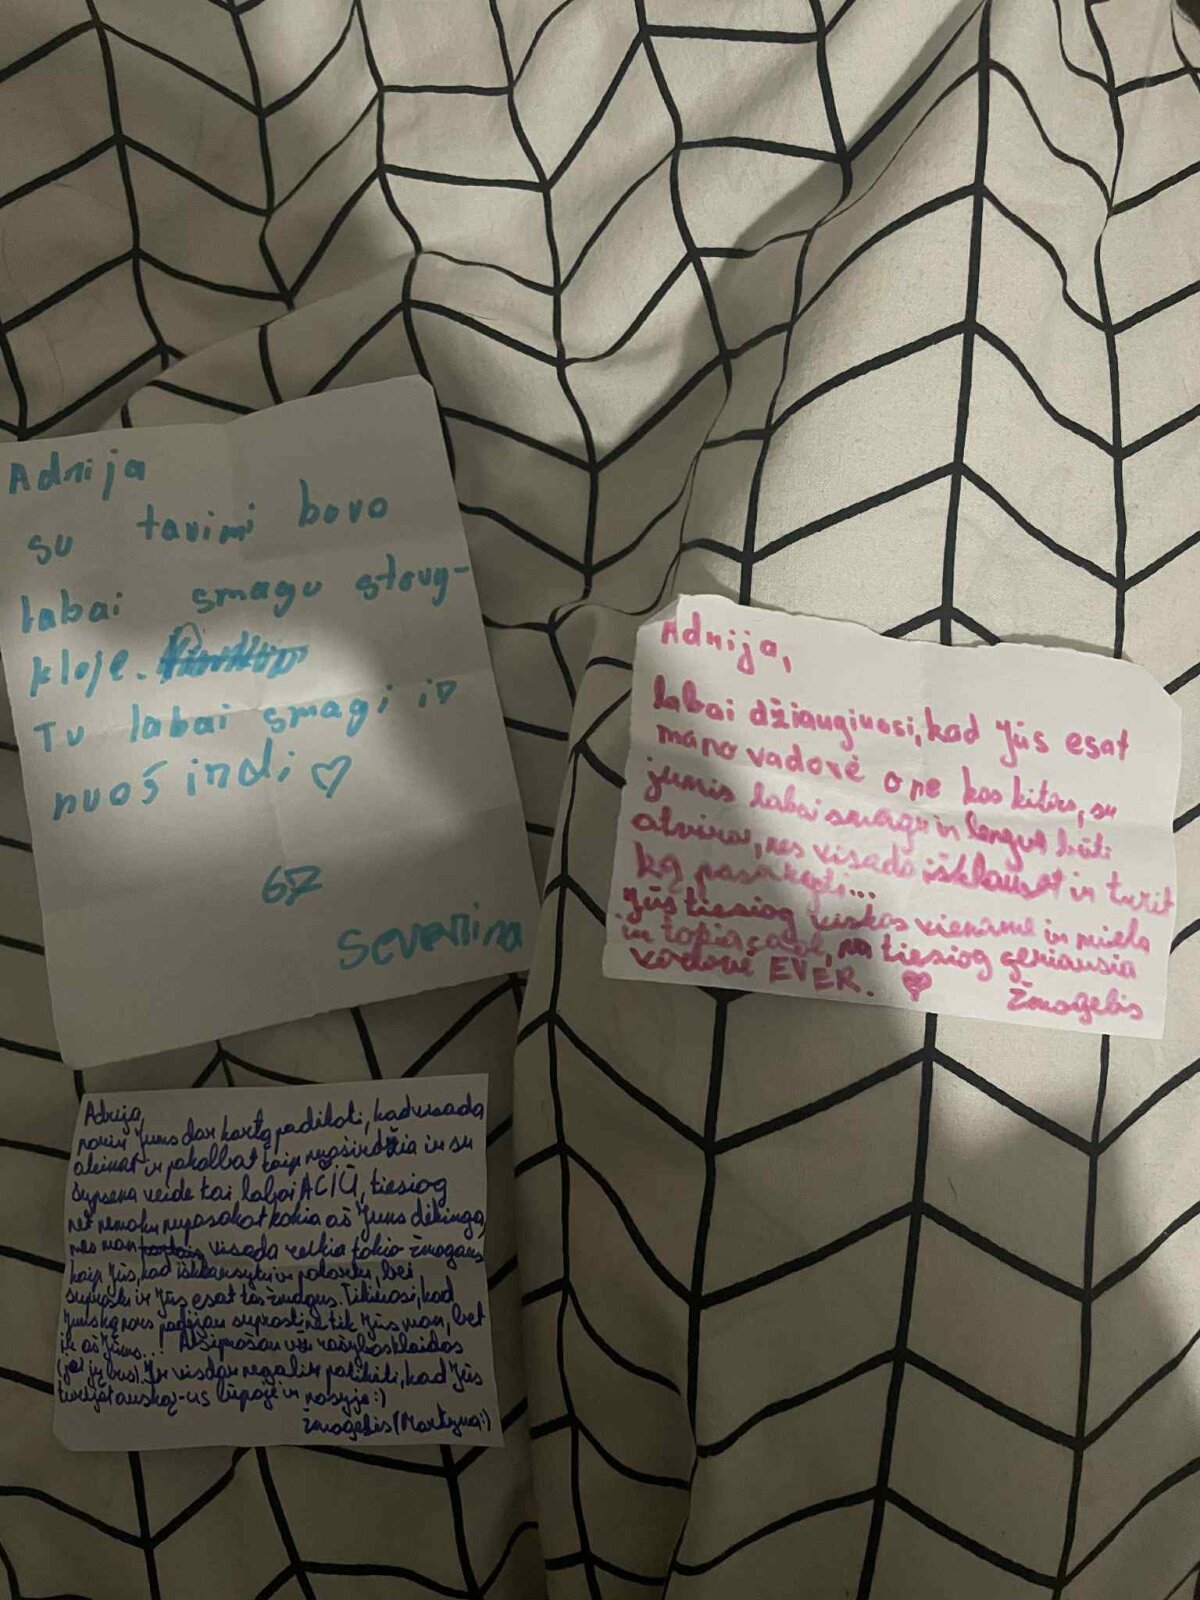 Adrija
su tavimi buvo
labai smagu stovy-
kloje.
Tu labai smagi ir
nuoširdi ♡
67
Severina
Adrija,
labai džiauginosi, kad Jūs esat
mano vadovė o ne kas kitas, su
jumis labai smagu ir lengva būti
atvirai, nes visada išklausot ir turit
ką pasakyti...
Jūs tiesiog viskas viename ir miela
ir, na tiesiog geriausia
vadovė EVER. ♡ Žmogelis
Adrija,
noriu Jums dar kartą padėkoti, kad visada
ateinat ir pakalbat taip nuoširdžia ir su
šypsena veide tai labai AČIŪ, tiesiog
net nemoku nupasakot kokia aš Jums dėkinga,
nes man visada reikia tokio žmogaus,
kaip Jūs, kad išklausytu ir patartu, bei
suprastu ir Jūs esat tas žmogus. Tikiuosi, kad
Jums nors padėjau suprasti ne tik Jūs man, bet
ir aš Jums...! Atsiprašau už rašybos klaidas
(jei jų bus). Ir visdar negaliu patikėti, kad Jūs
turėjot auskarą-us lūpoje ir nosyje :)
Žmogelis (Martyna:)